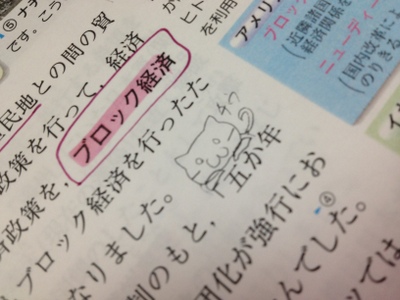 ⑤ナチ
です。こう
との間の貿
民地
政策を行って、経済
政策を、ブロック経済
ブロック経済を行ったた
なりました。
「五か年
制のもと，
団化が強行にお
んでした。
ては
④
チラ
ヒト
を利用
アメリ
ブロック
(近隣諸国
経済関係を
ニューディー
(国内改革によ
のりきる
イ